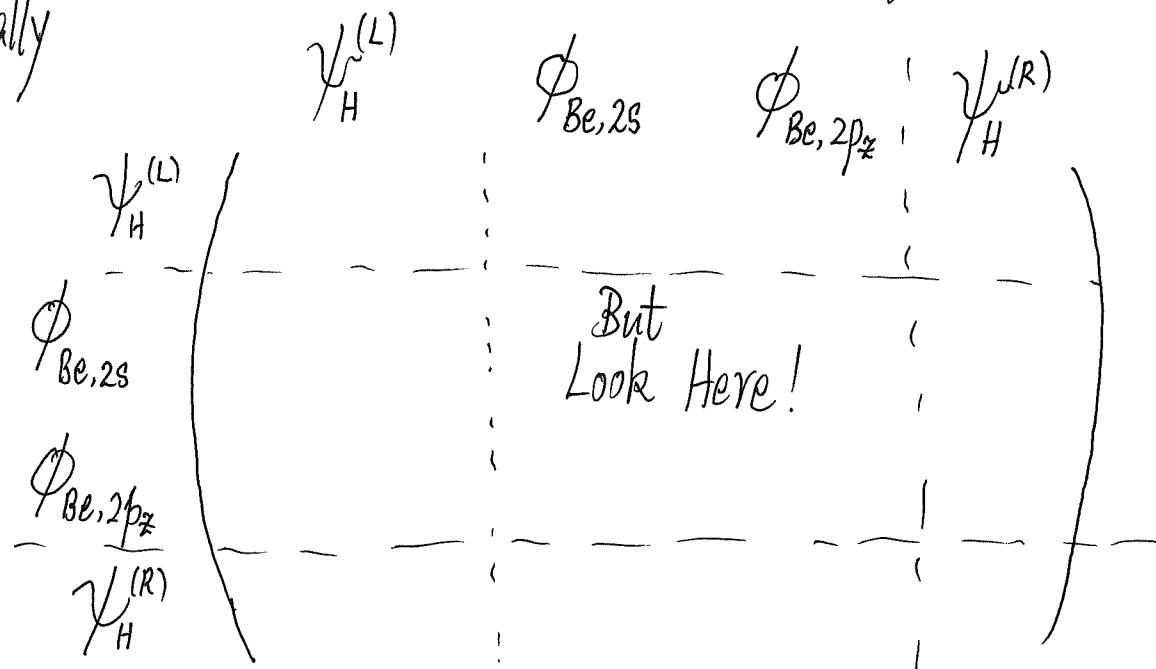 ally
ψ_H^(L) ϕ_Be,2s ϕ_Be,2p_z ψ_H^(R)
ψ_H^(L)
ϕ_Be,2s
But
Look Here!
ϕ_Be,2p_z
ψ_H^(R)